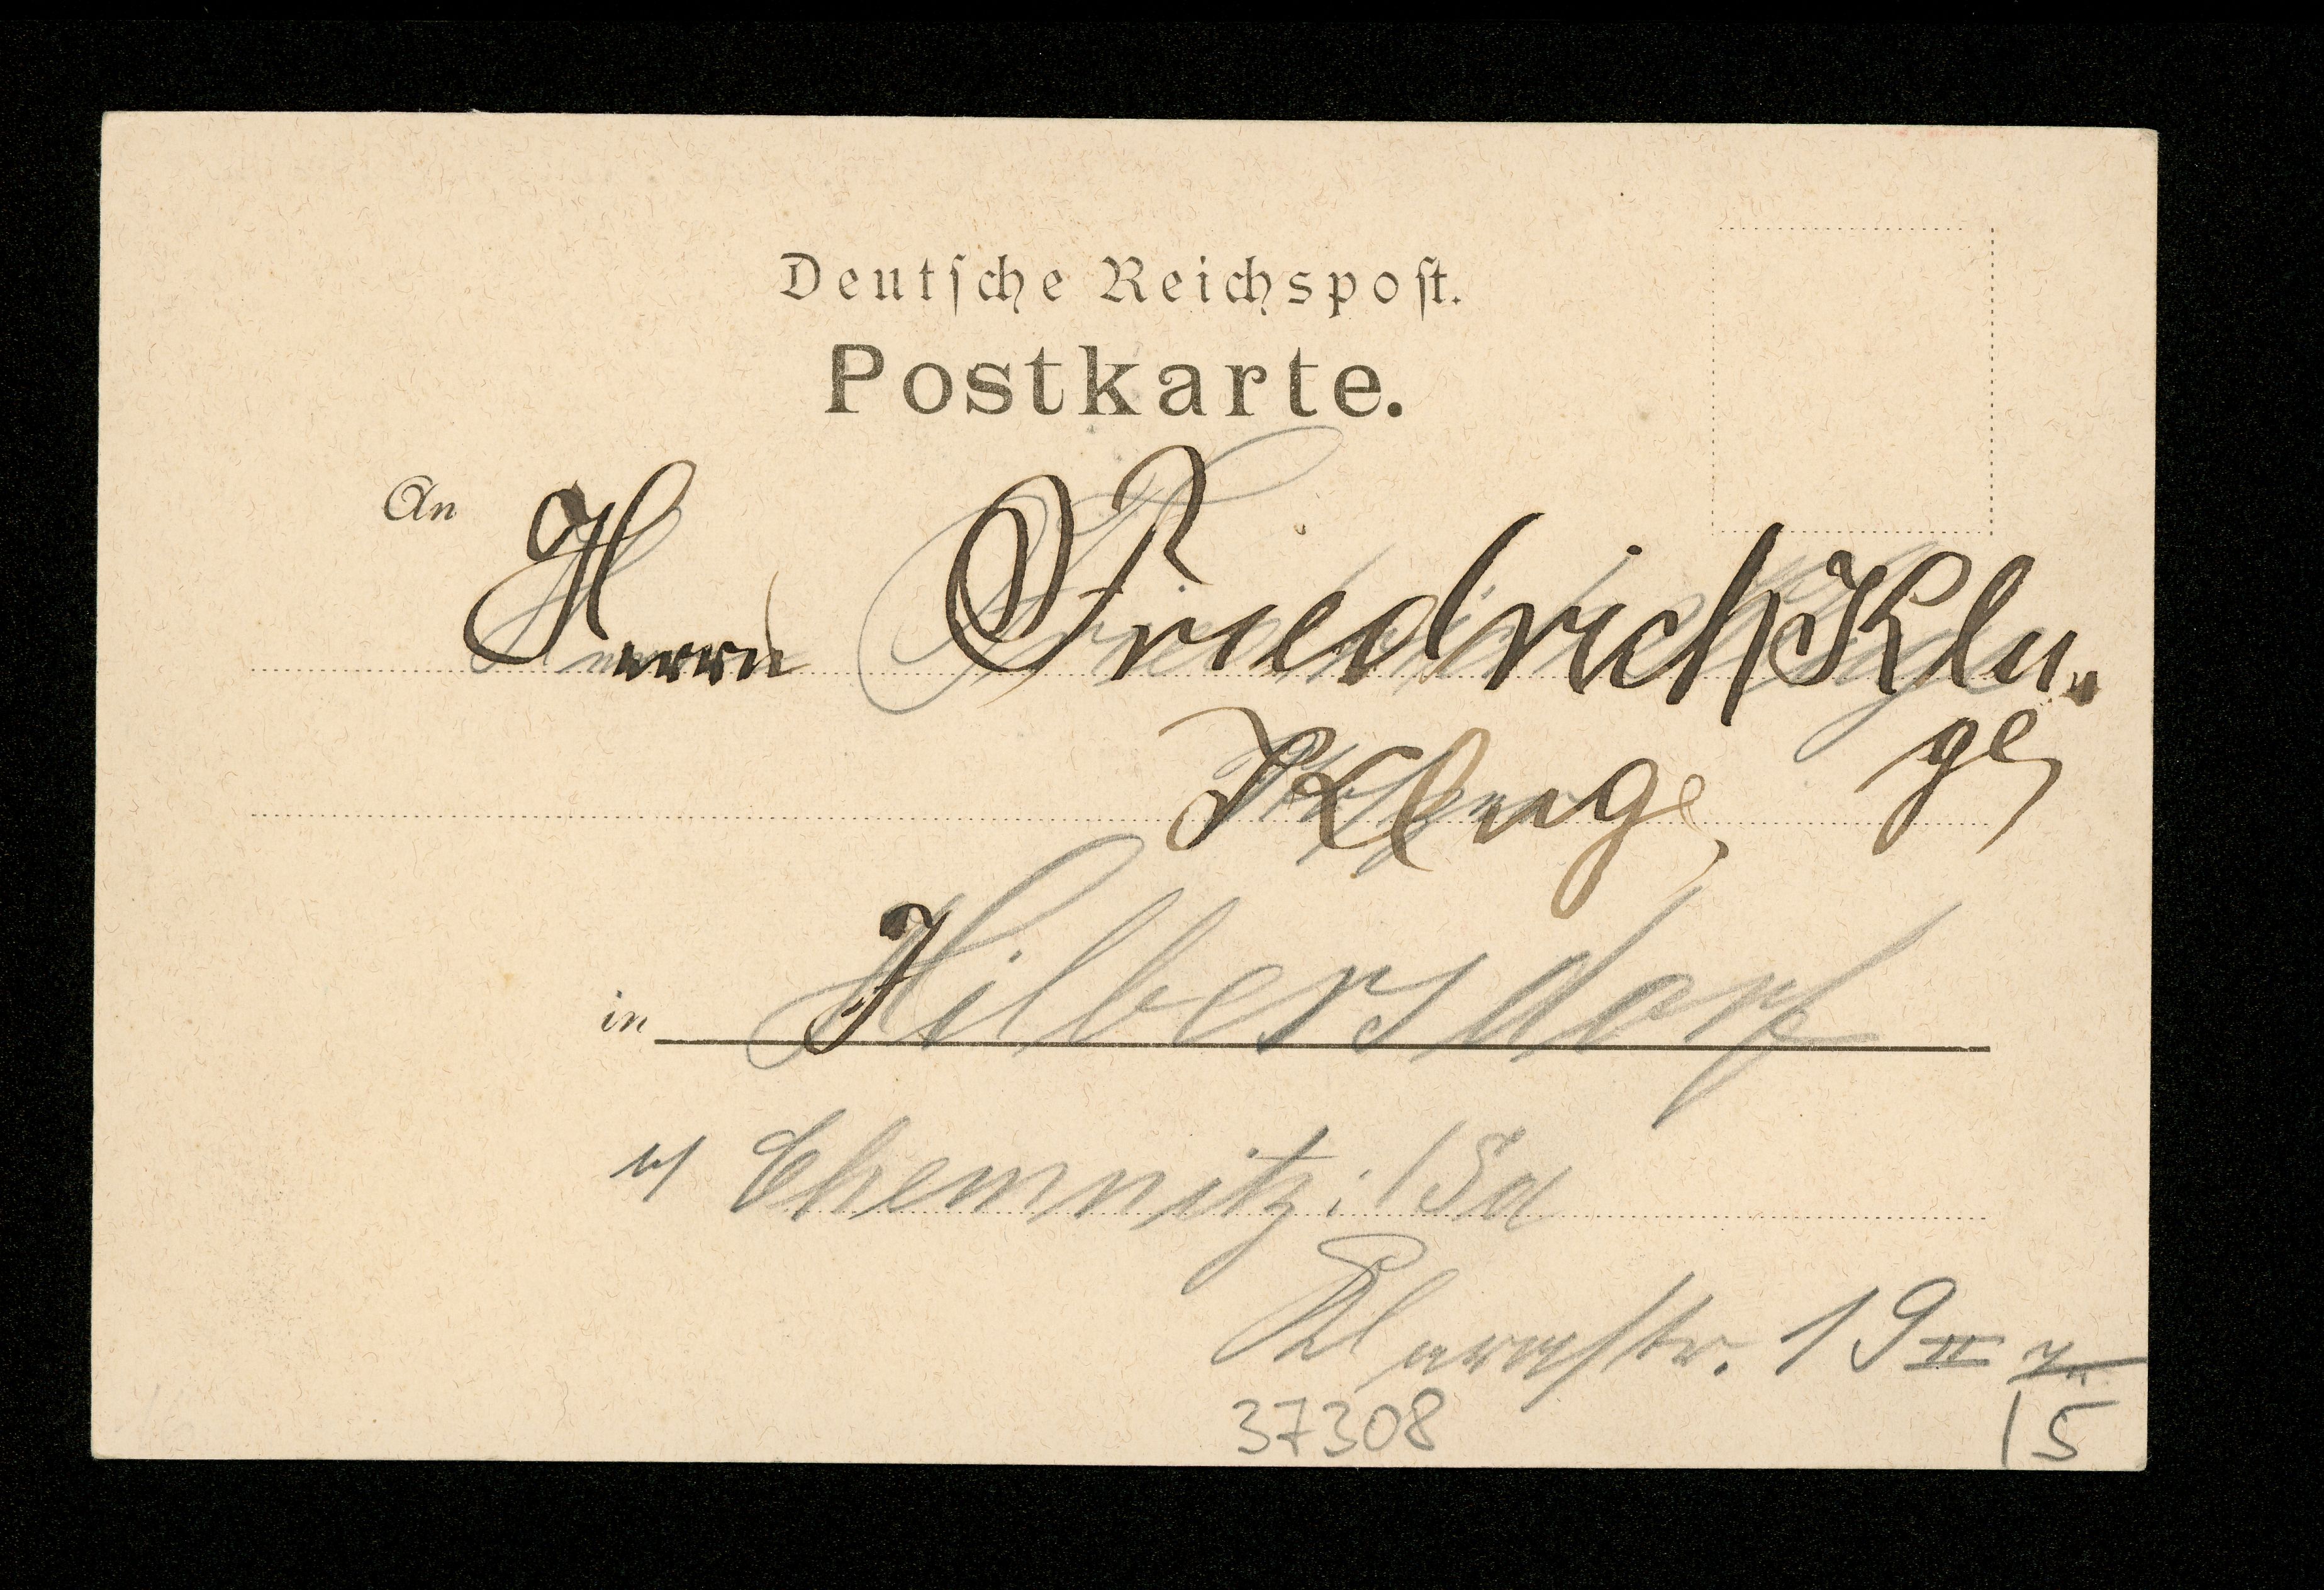 Deutſche Reichspoſt.
Postkarte.
An Herrn Friedrich Klu-
ge,
Kluge,
in Hilbersdorf
b/ Chemnitz i/Sa
19 II
37308
15